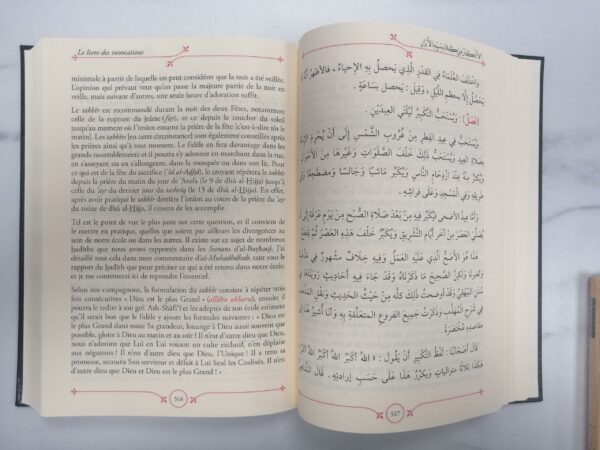 Le livre des invocations
minimale à partir de laquelle on peut considérer que la nuit a été veillée.
L'opinion qui prévaut veut qu'on passe la majeure partie de la nuit en
veille, mais suivant d'autres, une seule heure d'adoration suffit.
Le takbîr est recommandé durant la nuit des deux Fêtes, notamment
celle de la rupture du jeûne (fitr), et ce depuis le coucher du soleil
jusqu'au moment où l'imâm entame la prière de la fête [c'est-à-dire tôt le
matin]. Les takbîrs [en cette circonstance] sont également conseillés après
les prières ainsi qu'à tout moment. Le fidèle en fera davantage dans les
grands rassemblements et il pourra s'y adonner en marchant dans la rue,
en s'asseyant ou en s'allongeant, dans la mosquée ou dans son lit. Pour
ce qui est de la fête du sacrifice ('îd al-Adhâ), le croyant répètera le takbîr
depuis la prière du matin du jour de 'Arafa (le 9 de dhû al-Hijja) jusqu'à
celle du 'asr du dernier jour du tashrîq (le 13 de dhû al-Hijja). Enfin,
après avoir opéré takbîr derrière l'imâm au cours de la prière du 'asr
du treize de dhû al-Hijja, il cessera de les accomplir.
Tel est le point de vue le plus juste sur cette question, et il convient de
le mettre en pratique, quelles que soient par ailleurs les divergences au
sein de notre école ou dans les autres. Il existe sur ce sujet de nombreux
hadiths que nous avons rapportés dans les Sunans d'al-Bayhaqî. J'ai
détaillé tout cela dans mon commentaire d'al-Muhadhdhab, tant sous le
rapport du hadith que pour préciser ce qui a été retenu dans notre école,
et je me contenterai ici de reprendre l'essentiel.
Selon nos compagnons, la formulation du takbîr consiste à répéter trois
fois consécutives « Dieu est le plus Grand » (allâhu akbaru), ensuite il
pourra le redire à son gré. Ash-Shâfi'î et les adeptes de son école estiment
qu'il serait bon que le fidèle y ajoute les formules suivantes : « Dieu est
le plus Grand dans toute Sa grandeur, louange à Dieu aussi souvent que
possible, gloire à Dieu au matin et au soir ! Il n'est d'autre dieu que Dieu,
nous n'adorons que Lui en Lui vouant un culte exclusif, n'en déplaise
aux négateurs ! Il n'est d'autre dieu que Dieu, l'Unique ! Il a tenu sa
promesse, secouru Son serviteur et défait à Lui Seul les Coalisés. Il n'est
d'autre dieu que Dieu et Dieu est le plus Grand ! »
516
وَاخْتَلَفَ العُلَمَاءُ فِي القَدْرِ الَّذِي يَحصُلُ بِهِ الإِحياءُ ، فَالأَظْهَرُ أَنَّهُ لَا
يَحصُلُ إِلَّا بـمعظمِ اللَّيلِ ، وَقِيلَ : يَحصلُ بِسَاعَةٍ .
[فَصْلٌ] : وَيُستَحَبُّ التَّكْبِيرُ لَيْلَتَي العِيدَيْنِ .
وَيُستَحَبُّ فِي عِيدِ الفِطرِ مِنْ غُرُوبِ الشَّمْسِ إِلَى أَنْ يُحْرِمَ الإِمَامُ
بِصَلَاةِ العِيدِ وَيُستَحَبُّ ذَلِكَ خَلْفَ الصَّلَوَاتِ وَغَيْرِهَا مِنَ الأَحْوَالِ
وَيُكثِرُ مِنهُ عِنْدَ ازْدِحَامِ النَّاسِ وَيُكَبِّرُ مَاشِيًا وَجَالِسًا وَمضطَجِعًا وَفِي
طَرِيقِهِ وَفِي الْمَسْجِدِ وَعَلَى فِرَاشِهِ .
وَأَمَّا عِيدُ الأَضحَى فَيُكَبِّرُ فِيهِ مِنْ بَعْدِ صَلَاةِ الصُّبْحِ مِنْ يَوْمِ عَرَفَةَ إِلَى أَنْ
يُصَلِّيَ العَصْرَ مِنْ آخِرِ أَيَّامِ التَّشْرِيقِ وَيُكَبِّرُ خَلْفَ هَذِهِ العَصْرِ ثُمَّ يَقْطَعُ
هَذَا هُوَ الأَصَحُّ الَّذِي عَلَيْهِ العَمَلُ وَفِيهِ خِلَافٌ مَشْهُورٌ فِي مَذْهَبِنَا
وَلِغَيرِنَا وَلَكِنَّ الصَّحِيحَ مَا ذَكَرْنَاهُ وَقَدْ جَاءَ فِيهِ أَحَادِيثُ رَوَيْنَاهَا فِي
سُنَنِ البَيْهَقِيِّ وَقَدْ أَوضَحتُ ذَلِكَ كُلَّهُ مِنْ حَيْثُ الحَدِيثِ وَنَقلِ المَذهَبِ
فِي شَرْحِ الْمُهَذَّبِ وَذَكَرْتُ جَمِيعَ الفُرُوعِ المتَعَلِّقَةِ بِهِ وَأَنَا أُشِيرُ هُنَا إِلَى
مَقَاصِدِهِ مُخْتَصَرَةً
قَالَ أَصْحَابُنَا : لَفْظُ التَّكْبِيرِ أَنْ يَقُولَ : « اللهُ أَكْبَرُ اللهُ أَكْبَرُ اللهُ أَكْبَرُ »
هَكَذَا ثَلَاثًا مُتَوَالِيَاتٍ وَيكرِّرُ هَذَا عَلَى حَسَبِ إِرَادَتِهِ . قَالَ
517